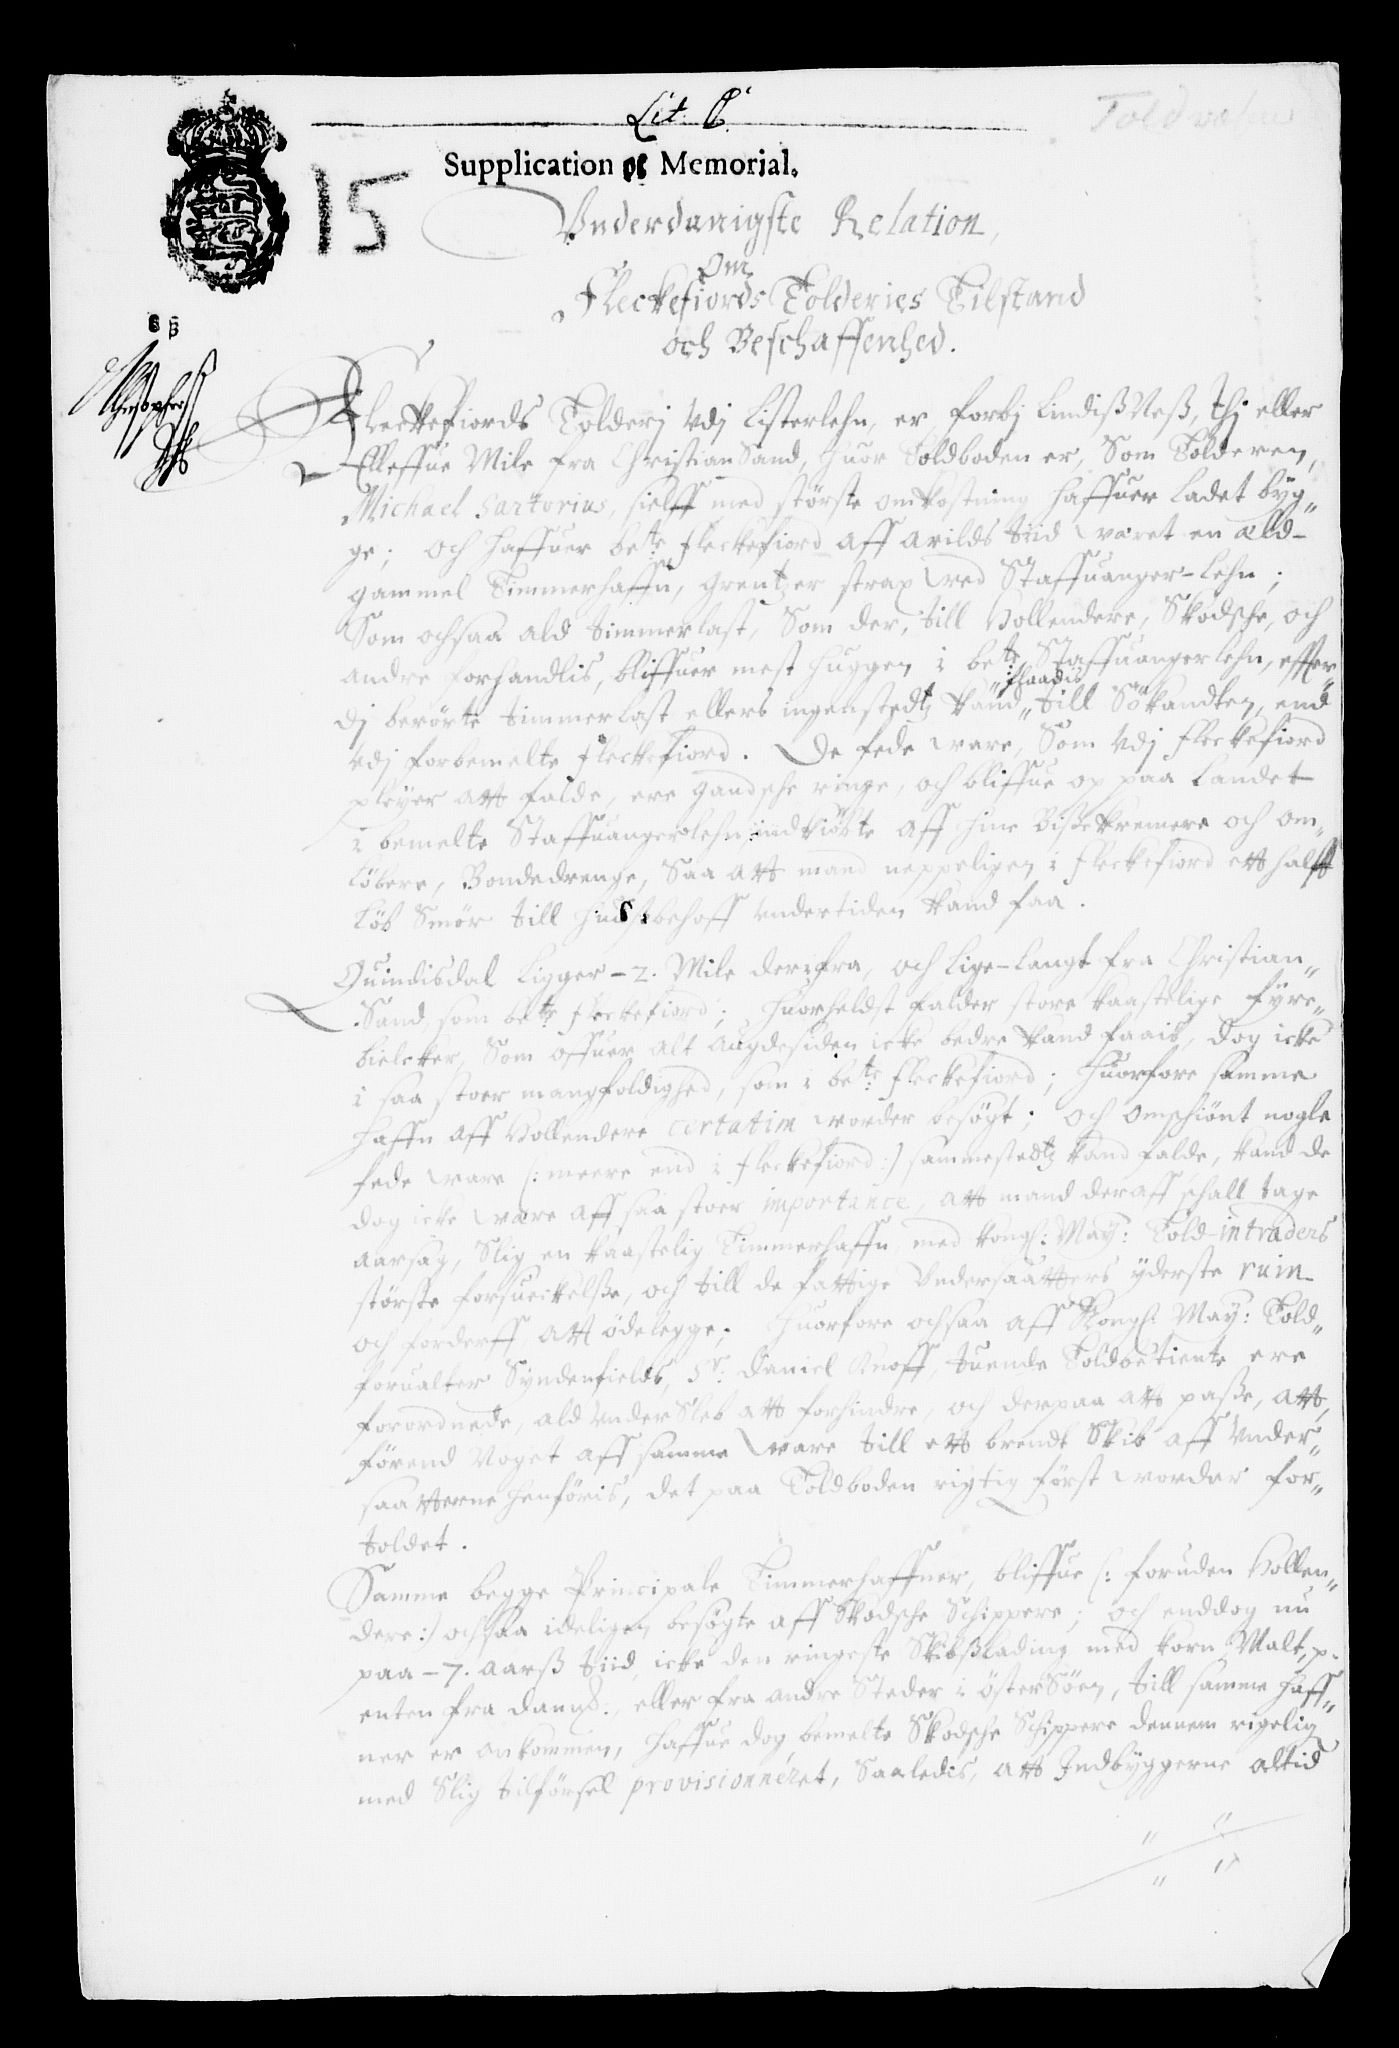 Lit. C.
Toldvæhen
Supplication og Memorial.
15
Vnderdanigste Relation,
Om
Fleckefiords Tolderies Tilstand
och Beschaffenhed.
6 ß
Fleckefiords Tolderj vdj Listerlehn, er forbj Lindißneß, thj eller
Elleffue Mile fra ChristianSand, huor Toldboden er, Som Tolderen,
Michael Sartorius, sielff med störste omkostning haffuer ladet byg„
ge; och haffuer bete. Fleckefiord aff arilds tiid været en æld-
gammel Timmerhaffn, grentzer strax ved Staffuanger-Lehn;
Som ochsaa ald timmerlast, Som der, till Hollendere, Skodsche, och
andre forhandlis, bliffuer mest huggen i bete: Staffuangerlehn, effter„
flaadis
dj berörte timmerlast ellers ingenstedtz kand„ till Sökandten, end
vdj forbemelte Fleckefiord. De fede vare, Som vdj Fleckefiord
pleyer att falde, ere gandsche ringe, och bliffue op paa Landet
i bemelte Staffuangerlehn indkiöbte aff hine Bissekremere och om„
löbere, Bondedrenge, Saa att mand neppeligen i Fleckefiord ett halff
Löb Smör till hußbehoff vndertiden kand faa.
Quindisdal Ligger - 2. Mile derfra, och lige-langt fra Christian„
Sand, som bete: Fleckefiord; huorheldst falder store kaastelige fyre„
bielcker, Som offuer alt Augdesiden icke bedre kand faais, dog icke
i saa stoer mangfoldighed, som i bete: Fleckefiord; huorfore samme
haffn aff Hollendere certatim vorder besögt; och omschiönt nogle
fede vare (: meere end i Fleckefiord:) sammestedtz kand falde, kand de
dog icke være aff saa stoer importance, att mand deraff schall tage
aarsag, Slig en kaastelig Timmerhaffn, med Kongl: May: Told-intraders
störste forsueckelße, och till de fattige Vndersaatters yderste ruin
och forderff att ödelegge. Huorfore ochsaa aff Kongl: May: Told„
forualter Syndenfields, Sr: Daniel Knoff, tuende Toldbetiente ere
forordnede, ald Vndersleb att forhindre, och derpaa att passe, att,
förend Noget aff samme vare till ett brendt Skib aff Vnder„
saatterne henföris, det paa Toldboden rigtig först vorder for„
toldet.
Samme begge Principale Timmerhaffner, bliffue (: foruden Hollen„
dere:) ochsaa ideligen besögte aff Skodsche Schippere; och enddog nu
paa - 7. Aarß tiid, icke den ringeste Skibßlading med korn, Malt, p.
enten fra Danmk: eller fra andre Steder i ÖsterSöen, till samme haff„
ner er ankommen, haffue dog bemelte Skodsche Schippere dennem rigelig
med Slig tilförsel provisionnéret, Saaledis, att Indbyggerne altid